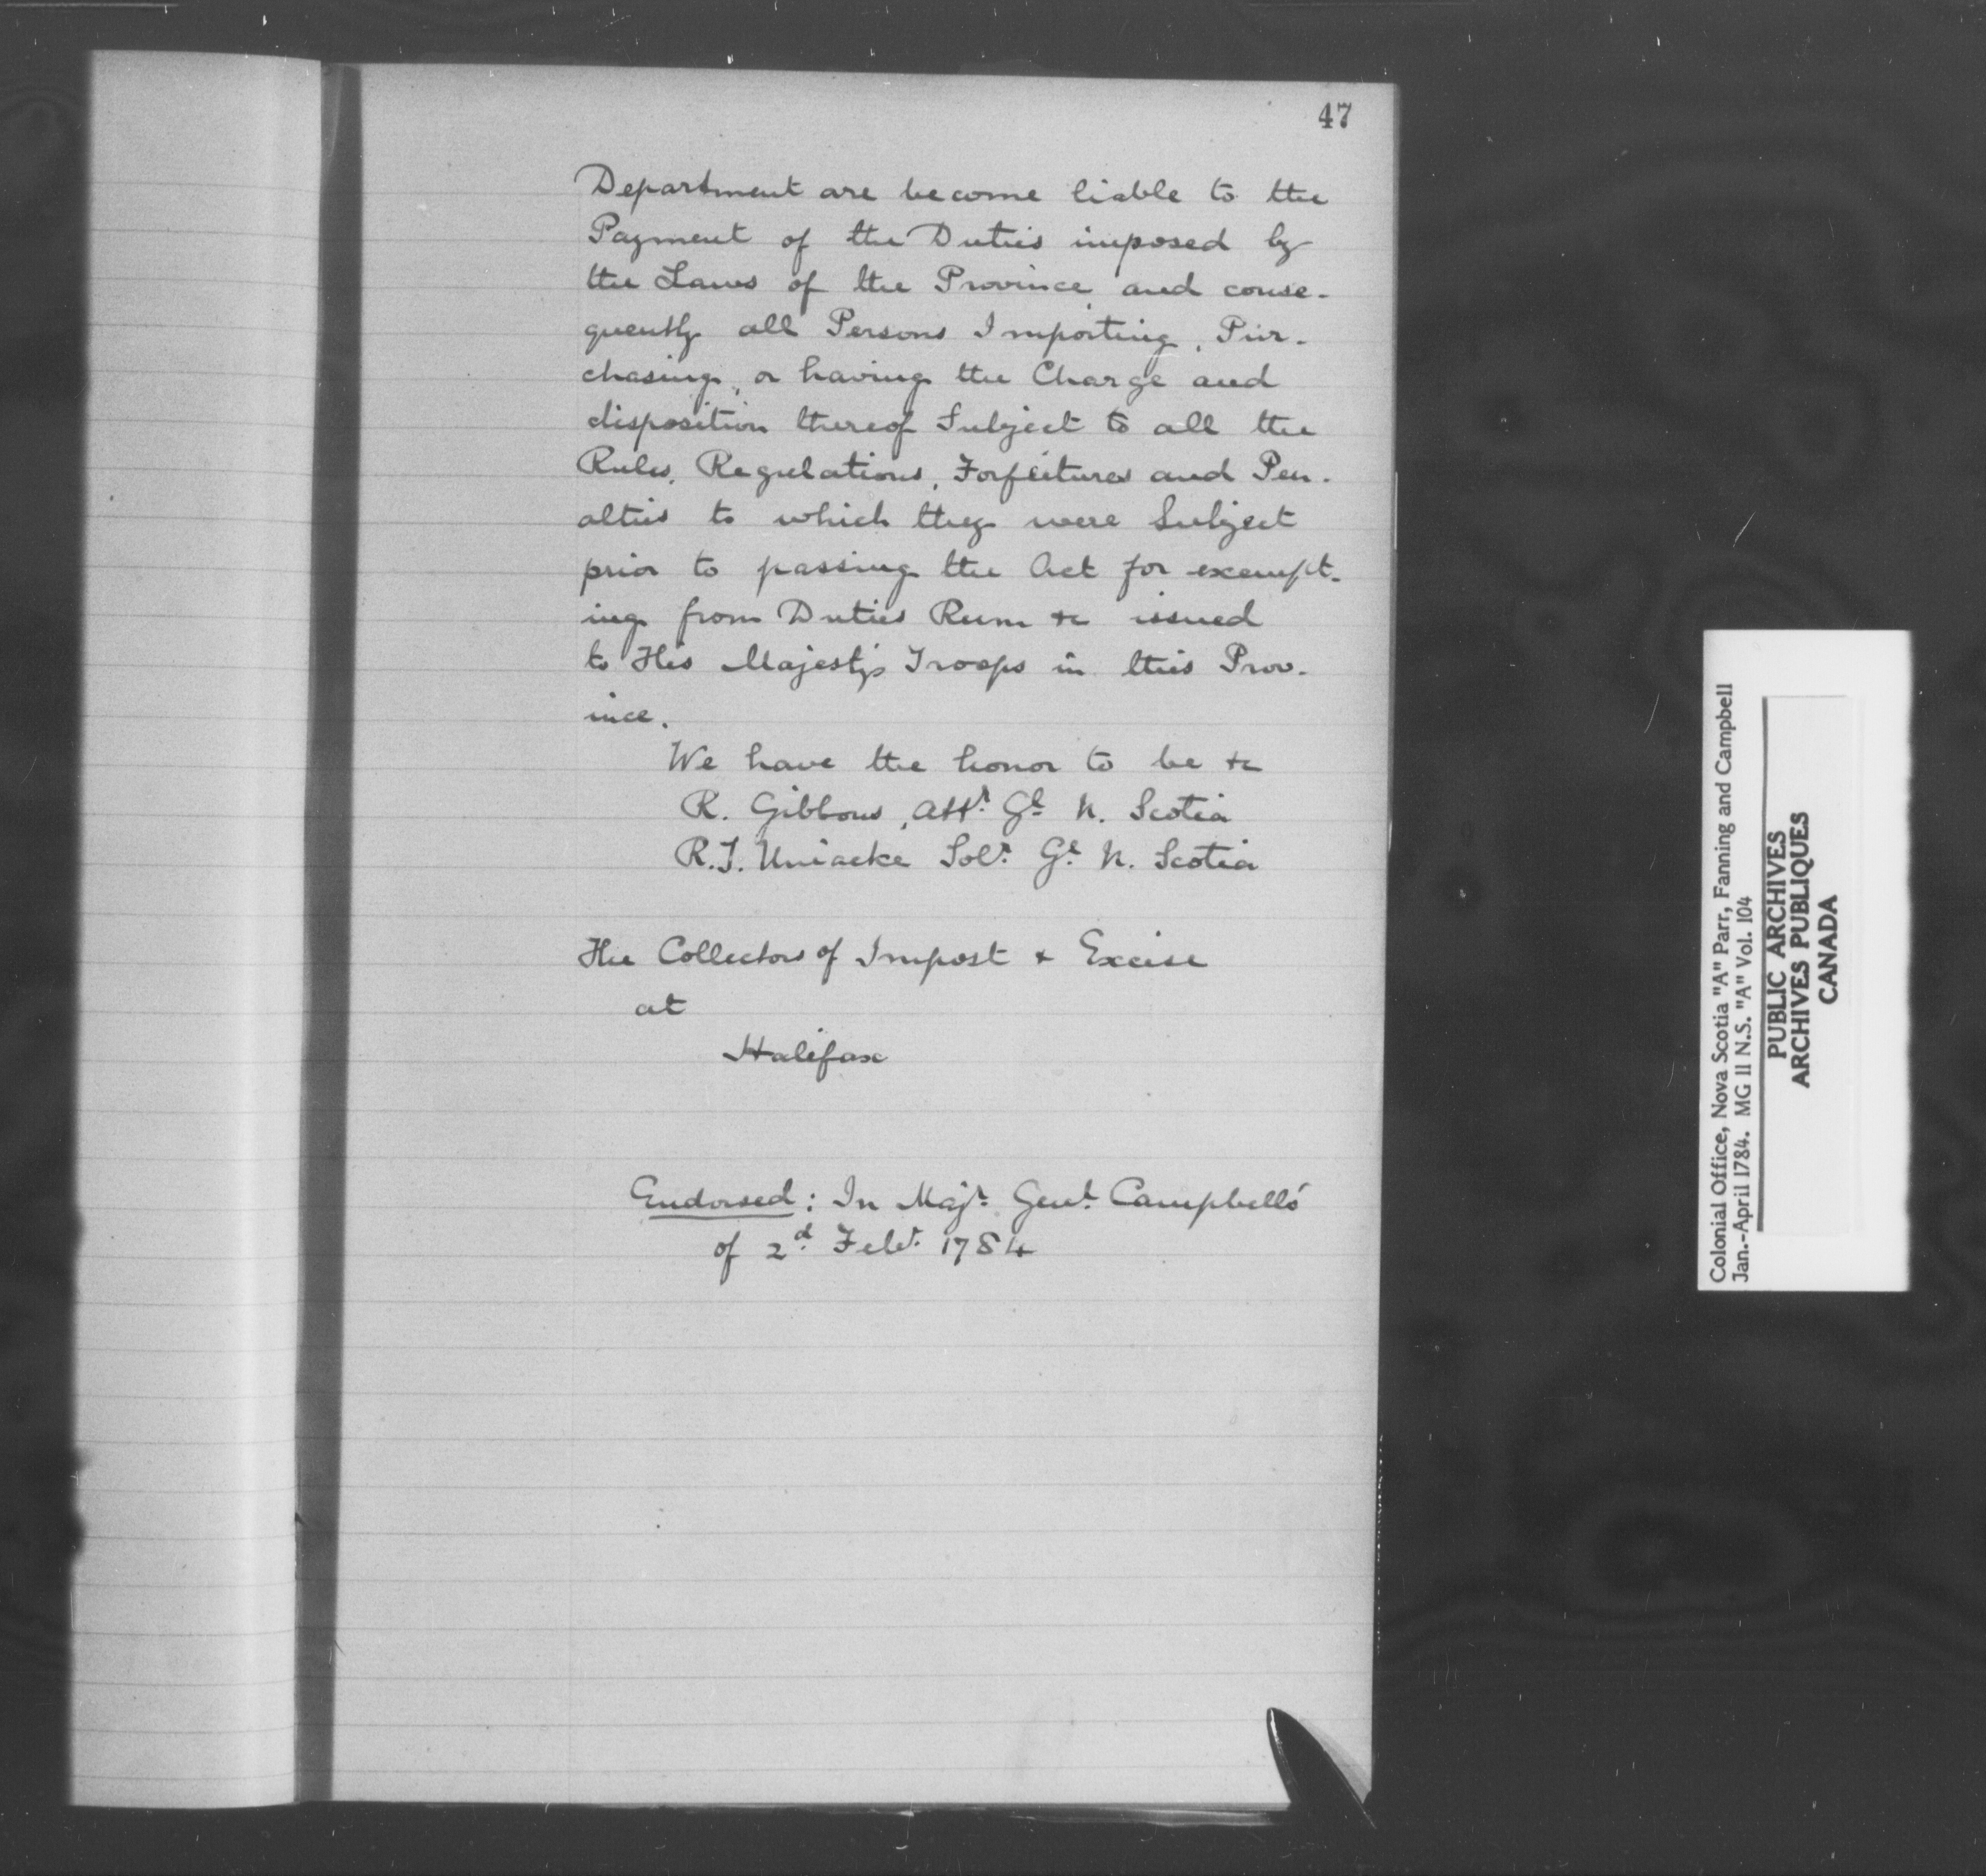 47
Department are become liable to the
Payment of the Duties imposed by
the Laws of the Province, and conse-
quently all Persons Importing, Pur-
chasing, or having the Charge and
disposition thereof Subject to all the
Rules, Regulations, Forfeitures and Pen-
alties to which they were Subject
prior to passing the Act for exempt-
ing from Duties Rum &c issued
to His Majesty's Troops in this Prov-
ince.
We have the honor to be &c
R. Gibbons, Attr. Gl. N. Scotia
R.J. Uniacke Solr. Gl. N. Scotia
The Collectors of Impost & Excise
at
Halifax
Endorsed: In Majr. Genl. Campbell's
of 2d. Feby. 1784
Colonial Office, Nova Scotia "A" Parr, Fanning and Campbell
Jan.-April 1784. MG 11 N.S. "A" Vol. 104
PUBLIC ARCHIVES
ARCHIVES PUBLIQUES
CANADA